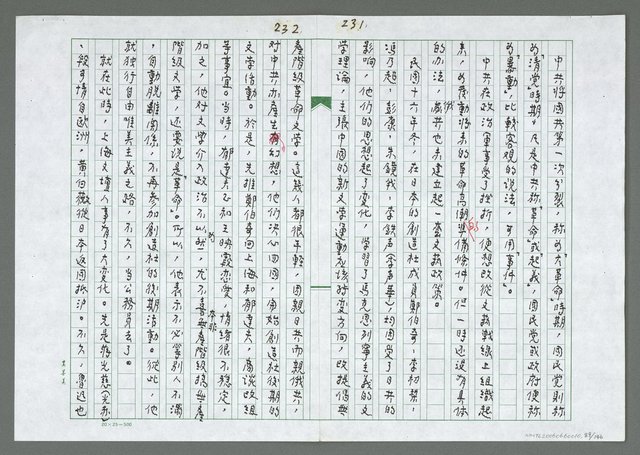 231.
中共將國共第一次分裂，稱為“大革命”時期，國民黨則稱
為“清黨”時期。凡是中共稱“革命”或“起義”，國民黨或政府便稱
為“暴動”，比較客觀的說法，可用“事件”。
中共在政治、軍事受了挫折，便想改從文藝戰線上組織起
來，為推動將來的革命高潮準備條件。但一時還沒有具體
的辦法，中共也未建立起一套文藝政策。
民國十六年冬，在日本的創造社成員鄭伯奇、李初梨、
馮乃超、彭康、朱鏡我、李鐵聲（李聲華），均因受了日共的
影响，他們的思想起了變化，學習了馬克思列寧主義的文
學理論，主張中國的新文學運動應該改變方向，改提倡無
232
產階級革命文學。這幾人都很年輕，因親日共而親俄共，
對中共亦產生幻想，他們決心回國，開始創造社後期的
文學活動。於是，先推鄭伯奇回上海和郁達夫，商談改組
等事宜。當時，郁達夫正和王映霞戀愛，情緒很不穩定，
加之，他對文學介入政治不以為然，尤不喜無產階級搞無產
階級文學，還要說是“革命”。所以，他表示不必等別人不滿
，自動脫離關係，不再參加創造社的後期活動。從此，他
就獨行自由唯美主義之路，不久，當公務員去了。
就在此時，上海文壇人事有了大變化。先是蔣光慈（光赤）
、段可情自歐洲，黃何微從日本返國抵滬。不久，魯迅也
20×25=500